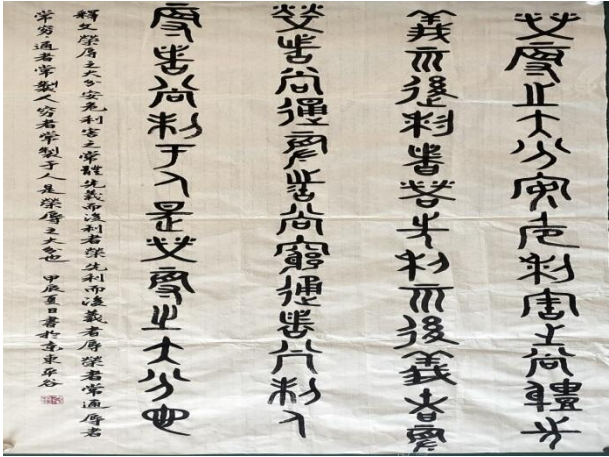 榮辱之大分安危利害之尚體先
義而後利者榮先利而後義者辱
榮者尚通辱者尚窮通者尚制人
辱者尚制于人是榮辱之大分也
釋文榮辱之大分安危利害之常體先義而後利者榮先利而後義者辱榮者常通辱者
常窮通者常製人窮者常製于人是榮辱之大分也 甲辰夏日書於京東平谷